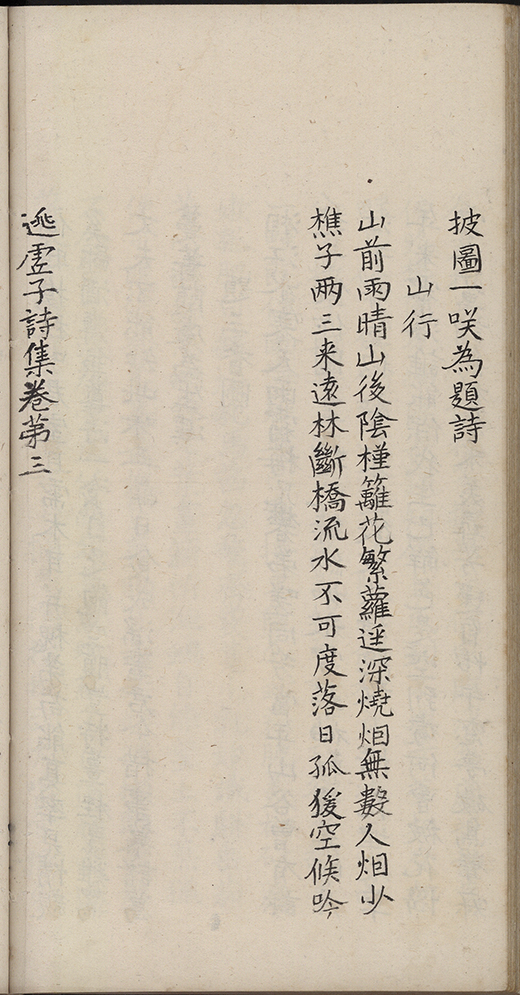 披圖一咲為題詩
山行
山前雨晴山後陰槿籬花繁蘿逕深燒烟無數人烟少
樵子两三来遠林斷橋流水不可度落日孤猨空倐吟
逃虛子詩集卷第三